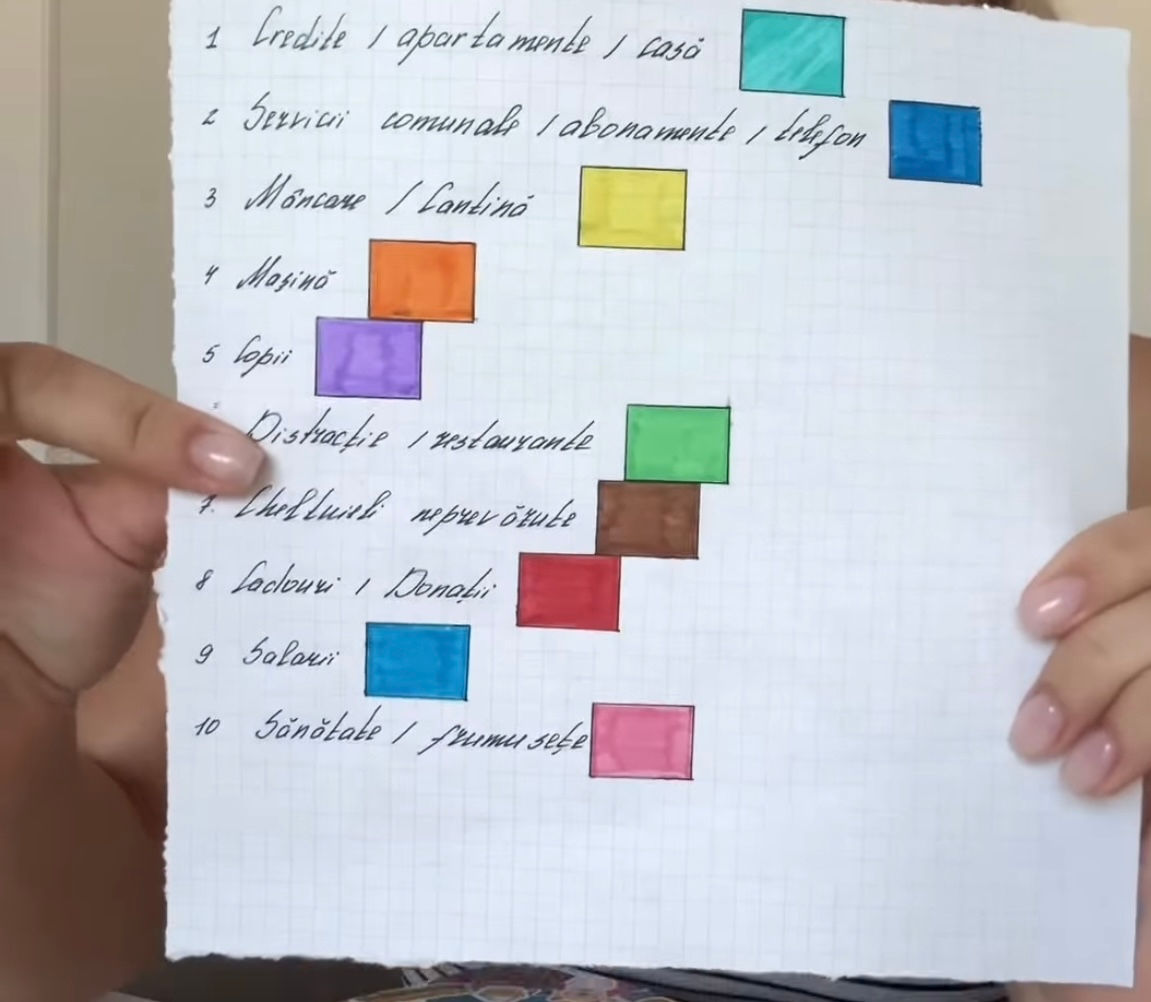 1 Credite / apartamente / casă
2 Servicii comunale / abonamente / telefon
3 Mâncare / Cantină
4 Mașină
5 Copii
Distracție / restaurante
7. Cheltuieli neprevăzute
8 Cadouri / Donații
9 Salarii
10 Sănătate / frumusețe